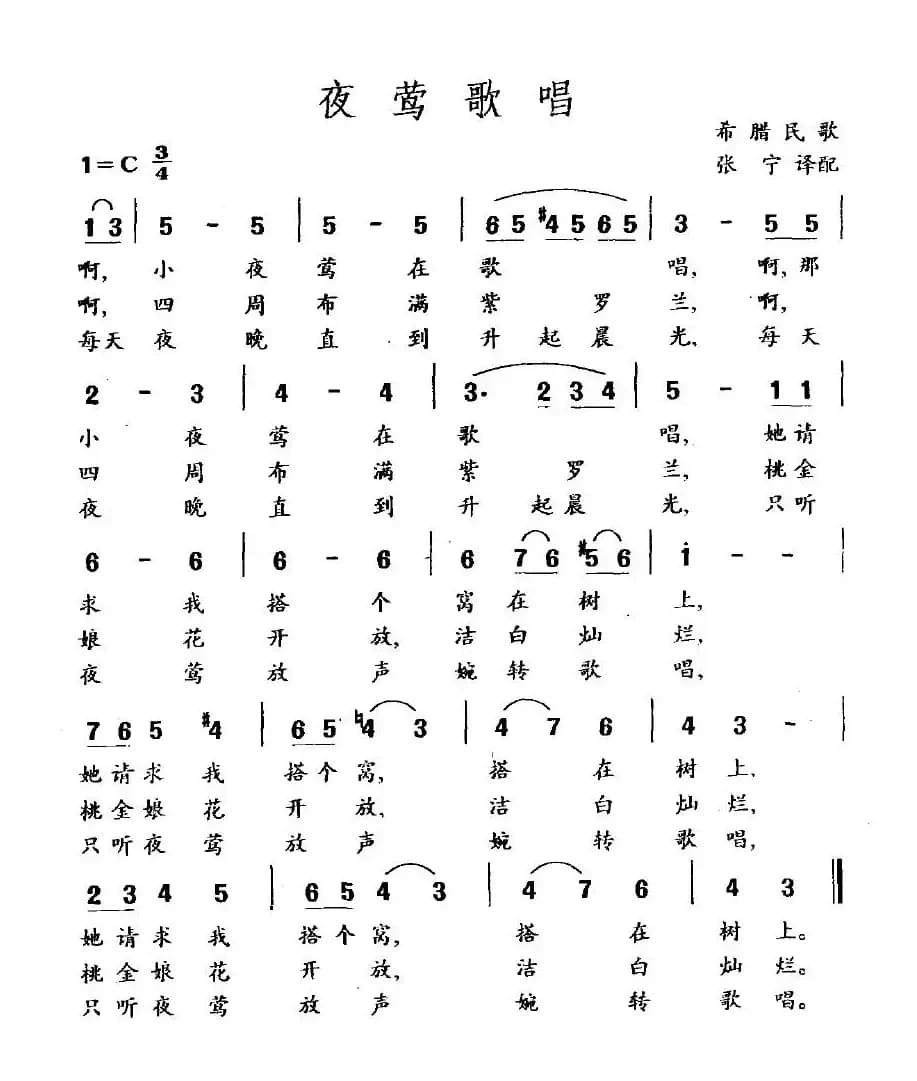 夜莺歌唱
希腊民歌
1=C 3/4
张宁译配
1 3 | 5 - 5 | 5 - 5 | 6 5 #4 5 6 5 | 3 - 5 5
啊,小夜莺在歌唱,啊,那
啊,四周布满紫罗兰,啊,
每天夜晚直到升起晨光,每天
2 - 3 | 4 - 4 | 3. 2 3 4 | 5 - 1 1 |
小夜莺在歌唱,她请
四周布满紫罗兰,桃金
夜晚直到升起晨光,只听
6 - 6 | 6 - 6 | 6 7 6 #5 6 | i - - |
求我搭个窝在树上,
娘花开放,洁白灿烂,
夜莺放声婉转歌唱,
7 6 5 #4 | 6 5 ♮4 3 | 4 7 6 | 4 3 - |
她请求我搭个窝,搭在树上,
桃金娘花开放,洁白灿烂,
只听夜莺放声婉转歌唱,
2 3 4 5 | 6 5 4 3 | 4 7 6 | 4 3 ‖
她请求我搭个窝,搭在树上。
桃金娘花开放,洁白灿烂。
只听夜莺放声婉转歌唱。